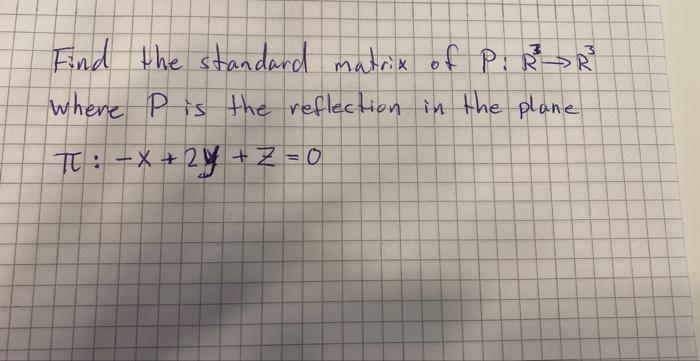 Find the standard matrix of P: R³→R³
where P is the reflection in the plane
π: -x + 2y + z = 0